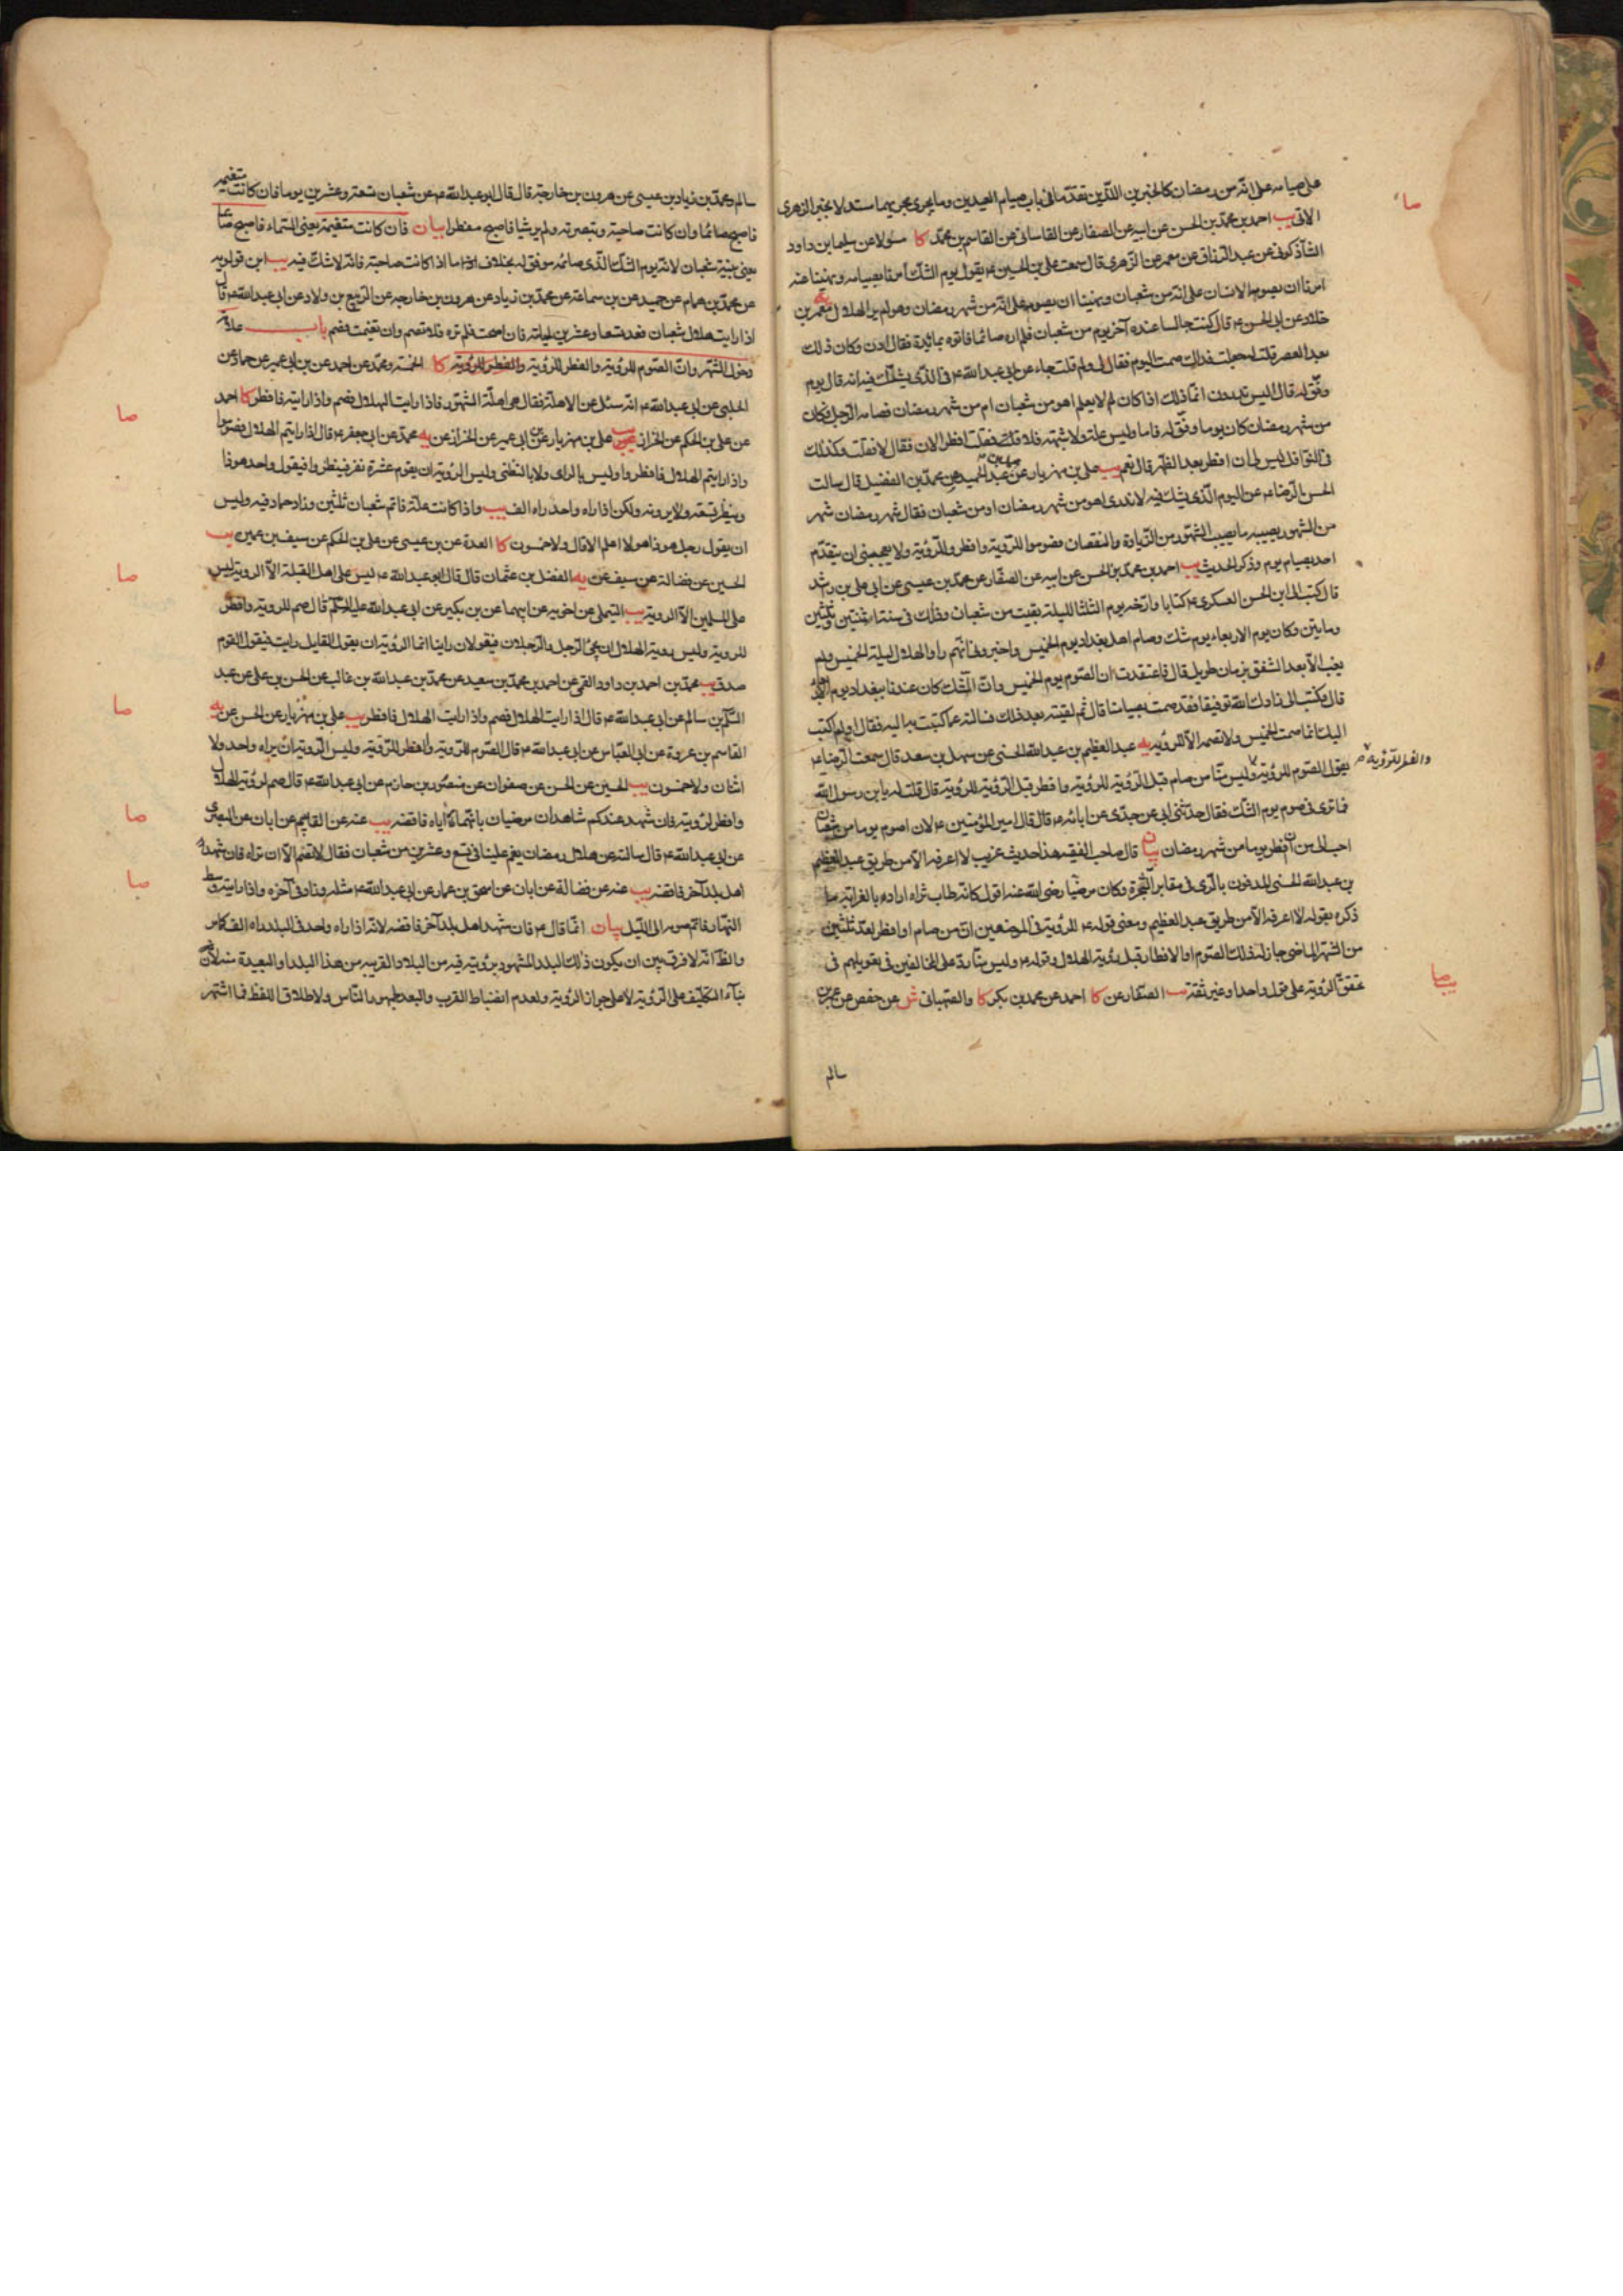 على صيامه على انه من رمضان كالخبرين اللذين تقدما فى باب صيام العيدين وما يجرى مجريهما استدلالا بخبر الزهرى
صا
الاتى يب احمد بن محمد بن الحسن عن ابيه عن الصفار عن القاسانى عن القاسم بن محمد كا عن سليمان بن داود
الشاذكونى عن عبد الرزاق عن معمر عن الزهرى قال سمعت على بن الحسين ع يقول يوم الشك امرنا بصيامه ونهينا عنه
امرنا ان يصومه الانسان على انه من شعبان ونهينا ان يصومه على انه من شهر رمضان وهو لم ير الهلال يه معمر بن
خلاد عن ابى الحسن ع قال كنت جالسا عنده آخر يوم من شعبان فلم اره صائما فاتوه بمائدة فقال ادن وكان ذلك
بعد العصر قلت له جعلت فداك صمت اليوم فقال لى ولم قلت جاء عن ابى عبد الله ع فى الذى يشك فيه انه قال يوم
وفق له قال اليس تدرون انما ذلك اذا كان لم لا يعلم اهو من شعبان ام من شهر رمضان فصامه الرجل فكان
من شهر رمضان كان يوما وفق له فاما وليس علة ولا شبهة فلا فقلت افطر الان فقال لا فقلت وكذلك
فى النوافل ليس لى ان افطر بعد الظهر قال نعم يب على بن مهزيار عن عبد الحميد عن محمد بن الفضيل قال سالت
الحسن الرضا ع عن اليوم الذى يشك فيه لا ندرى اهو من شهر رمضان او من شعبان فقال شهر رمضان شهر
من الشهور يصيبه ما يصيب الشهور من الزيادة والنقصان فصوموا للرؤية وافطروا للرؤية ولا يعجبنى ان يتقدم
احد بصيام يوم وذكر الحديث يب احمد بن محمد بن الحسن عن ابيه عن الصفار عن محمد بن عيسى عن ابى على بن راشد
قال كتب الى ابو الحسن العسكرى ع كتابا وارخه يوم الثلثا لليلة بقيت من شعبان وذلك فى سنة اثنتين وثلثين
ومايتين وكان يوم الاربعاء يوم شك وصام اهل بغداد يوم الخميس واخبرونى انهم راوا الهلال ليلة الخميس ولم
يغب الا بعد الشفق بزمان طويل قال فاعتقدت ان الصوم يوم الخميس وان الشك كان عندنا ببغداد يوم الاربعاء
قال فكتب الى زادك الله توفيقا فقد صمت بصيامنا قال ثم لقيته بعد ذلك فسالته عما كتبت به اليه فقال او لم اكتب
اليك انما صمت الخميس ولا تصمه الا للرؤية يه عبد العظيم بن عبد الله الحسنى عن سهل بن سعد قال سمعت الرضا ع
والفطر للرؤية
يقول الصوم للرؤية وليس منا من صام قبل الرؤية للرؤية وافطر قبل الرؤية للرؤية قال قلت له يا بن رسول الله
فما ترى فى صوم يوم الشك فقال حدثنى ابى عن جدى عن ابائه ع قال قال امير المؤمنين ع لان اصوم يوما من شعبان
احب الى من ان افطر يوما من شهر رمضان بيان قال صاحب الفقيه هذا حديث غريب لا اعرفه الا من طريق عبد العظيم
بن عبد الله الحسنى المدفون بالرى فى مقابر الشجرة وكان مرضيا رضى الله عنه اقول كانه طاب ثراه اراد بالغرابة ما
ذكره بقوله لا اعرفه الا من طريق عبد العظيم ومعنى قوله ع للرؤية فى الموضعين ان من صام او افطر بعد ثلثين
من الشهر الماضى جاز له ذلك الصوم او الافطار قبل رؤية الهلال وقوله ع وليس منا رد على المخالفين فى تعويلهم فى
يب صا
تحقق الرؤية على قول واحد او غير ثقة يب الصفار عن كا احمد عن محمد بن بكر كا والصهبانى ش عن حفص عن عمر بن
سالم
سالم ومحمد بن زياد بن عيسى عن هرون بن خارجة قال قال ابو عبد الله ع عد شعبان تسعة وعشرين يوما فان كانت متغيمة
فاصبح صائما وان كانت صاحية وتبصرته ولم تر شيا فاصبح مفطرا بيان فان كانت متغيمة يعنى السماء فاصبح صائما
يعنى بنية شعبان لانه يوم الشك الذى صائمه موفق له بخلاف ما اذا كانت صاحية فانه لا شك فيه يب ابن قولويه
عن محمد بن همام عن حميد عن بن سماعة عن محمد بن زياد عن هرون بن خارجه عن الربيع بن ولاد عن ابى عبد الله ع قال
اذا رايت هلال شعبان فعد تسعا وعشرين ليلة فان اصحت فلم تره فلا تصم وان تغيمت فصم باب علامة
دخول الشهر وان الصوم للرؤية والفطر للرؤية كا الخمسة ومحمد عن احمد عن بن ابى عمير عن حماد عن
صا
الحلبى عن ابى عبد الله ع انه سئل عن الاهلة فقال هى اهلة الشهور فاذا رايت الهلال فصم واذا رايته فافطر كا احمد
عن على بن الحكم عن الخزاز يب على بن مهزيار عن بن ابى عمير عن الخزاز عن يه محمد عن ابى جعفر ع قال اذا رايتم الهلال فصوموا
واذا رايتم الهلال فافطروا وليس بالراى ولا بالتظنى وليس الرؤية ان يقوم عشرة نفر فينظروا فيقول واحد هو ذا
وينظر تسعة ولا يرونه ولكن اذا راه واحد راه الف يب واذا كانت علة فاتم شعبان ثلثين وزاد حماد فيه وليس
ان يقول رجل هو ذا هو لا اعلم الا قال ولا خمسون كا العدة عن بن عيسى عن على بن الحكم عن سيف بن عميرة يب
صا
الحسين عن فضالة عن سيف عن يه الفضل بن عثمان قال قال ابو عبد الله ع ليس على اهل القبلة الا الروية ليس
على المسلمين الا الروية يب التيملى عن اخويه عن ابيهما عن بن بكير عن ابى عبد الله عليه السلام قال صم للروية وافطر
للروية وليس روية الهلال ان يجئ الرجل والرجلان فيقولان راينا انما الرؤية ان يقول القايل رايت فيقول القوم
صدق يب محمد بن احمد بن داود القمى عن احمد بن محمد بن سعيد عن محمد بن عبد الله بن غالب عن الحسن بن على عن عبد
صا
السلام بن سالم عن ابى عبد الله ع قال اذا رايت الهلال فصم واذا رايت الهلال فافطر يب على بن مهزيار عن الحسن عن يه
القاسم بن عروة عن ابى العباس عن ابى عبد الله ع قال الصوم للرؤية والفطر للرؤية وليس الرؤية ان يراه واحد ولا
اثنان ولا خمسون يب الحسين عن الحسن عن صفوان عن منصور بن حازم عن ابى عبد الله ع قال صم لرؤية الهلال
صا
وافطر لرؤيته فان شهد عندكم شاهدان مرضيان بانهما راياه فاقضه يب عنه عن القاسم عن ابان عن البصرى
عن ابى عبد الله ع قال سالته عن هلال رمضان يغم علينا فى تسع وعشرين من شعبان فقال لا تصم الا ان تراه فان شهد
صا
اهل بلد آخر فاقضه يب عنه عن فضالة عن ابان عن اسحق بن عمار عن ابى عبد الله ع مثله وزاد فى آخره واذا رايته وسط
النهار فاتم صومه الى الليل بيان انما قال ع فان شهد اهل بلد آخر فاقضه لانه اذا راه واحد فى البلد راه الف كما مر
والظ انه لا فرق بين ان يكون ذلك البلد المشهود برؤيته فيه من البلاد القريبة من هذا البلد او البعيدة منه لان
بناء التكليف على الرؤية لا على جواز الرؤية ولعدم انضباط القرب والبعد لجمهور الناس ولاطلاق اللفظ فما اشتهر